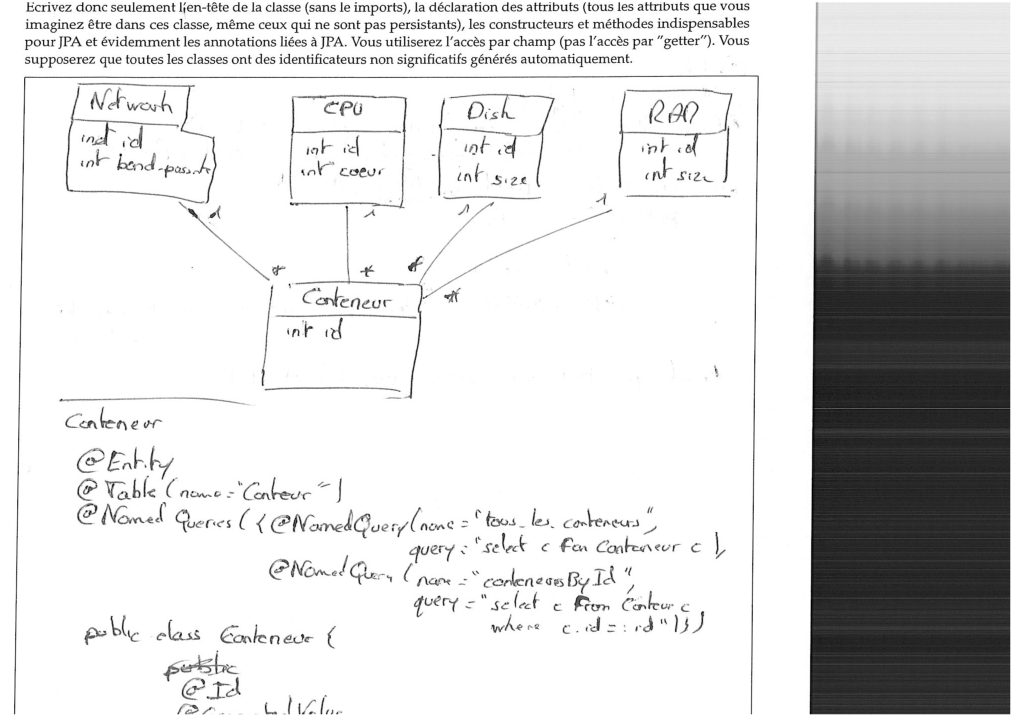 Ecrivez donc seulement l'en-tête de la classe (sans le imports), la déclaration des attributs (tous les attributs que vous
imaginez être dans ces classe, même ceux qui ne sont pas persistants), les constructeurs et méthodes indispensables
pour JPA et évidemment les annotations liées à JPA. Vous utiliserez l'accès par champ (pas l'accès par "getter"). Vous
supposerez que toutes les classes ont des identificateurs non significatifs générés automatiquement.
Network
int id
int band-passante
CPU
int id
int coeur
Disk
int id
int size
RAM
int id
int size
1
1
1
1
*
*
*
*
Conteneur
int id
Conteneur
@Entity
@Table (name="Conteur")
@Named Queries ({@NamedQuery (name = "tous_les_conteneurs",
query = "select c from Conteneur c ),
@NamedQuery (name = "conteneursById",
query = "select c From Conteur c
where c.id = :id")})
public class Conteneur {
public
@Id